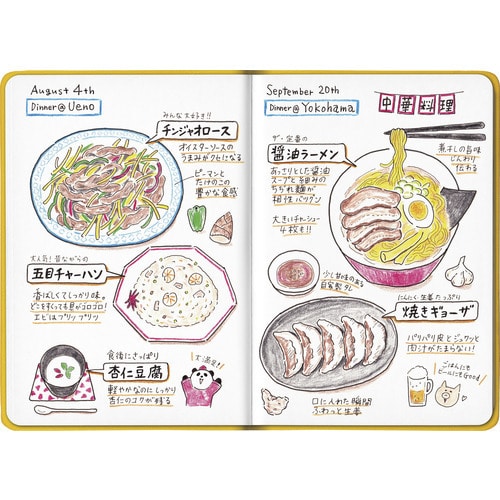 August 4th
Dinner@Ueno
みんな大好き!!
チンジャオロース
オイスターソースの
うまみがクセになる
ピーマンと
たけのこの
豊かな食感
大人気!昔ながらの
五目チャーハン
香ばしくてしっかり味。
どこをすくっても具がゴロゴロ!
エビはプリップリッ
食後にさっぱり
杏仁豆腐
軽やかなのにしっかり
杏仁のコクが残る
大満足!
September 20th
Dinner@Yokohama
中華料理
ザ・定番の
醤油ラーメン
あっさりとした醤油
スープと細めの
ちぢれ麺が
相性バツグン
大きいチャーシュー
4枚も!!
煮干しの旨味
じんわり
伝わる
少し甘味のある
自家製タレ
にんにく・生姜たっぷり
焼きギョーザ
パリパリ皮とジュワッと
肉汁がたまらない!
口に入れた瞬間
ふわっと生姜
ごはんにも
ビールにもGood!